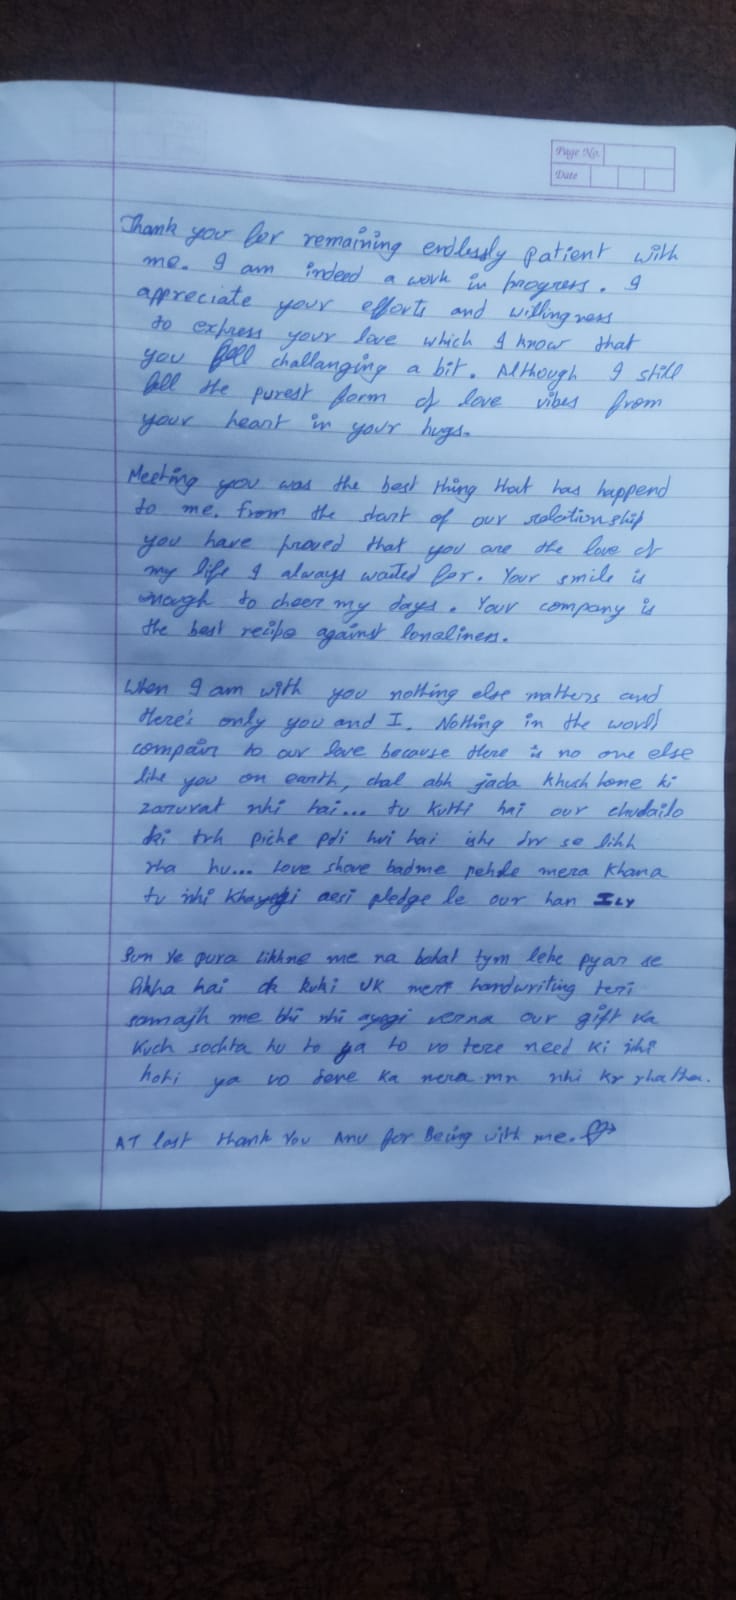 Page No.
Date
Thank you for remaining endlessly patient with
me. I am indeed a work in progress. I
appreciate your efforts and willingness
to express your love which I know that
you feel challanging a bit. Although I still
fell the purest form of love vibes from
your heart in your hugs.
Meeting you was the best thing that has happend
to me. From the start of our relationship
you have proved that you are the love of
my life I always waited for. Your smile is
enough to cheer my days. Your company is
the best recipe against lonaliness.
When I am with you nothing else matters and
there's only you and I. Nothing in the world
compair to our love because there is no one else
like you on earth, chal abh jada khush hone ki
zaruvat nhi hai... tu kutti hai our chudailo
ki trh piche pdi hui hai ishe drr se likh
rha hu... Love shove badme pehele mera khana
tu nhi khayegi aesi pledge le our han ILY
Sun ye pura likhne me na bohat tym lehe pyar se
likha hai kuki UK mera handwriting teri
samajh me bhi nhi ayegi verna our gift ka
kuch sochta hu to ya to vo tere need ki nhi
hoti ya vo dene ka mera mn nhi kr rha tha.
AT last thank You Anu for Being with me.